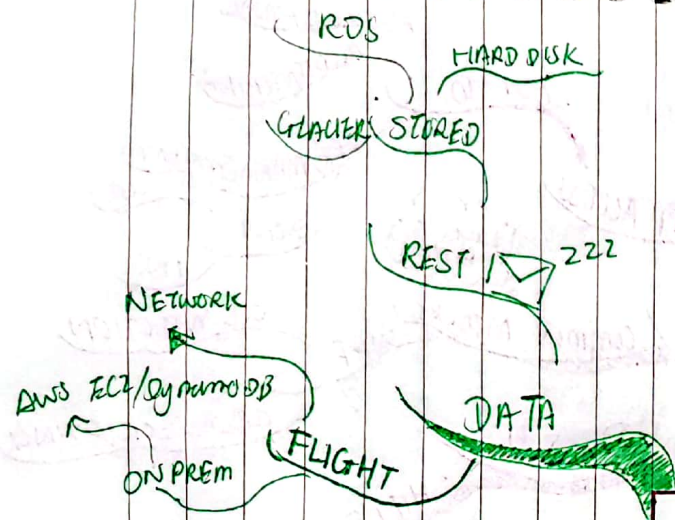 RDS
HARD DISK
GLACIER STORED
REST ZZZ
NETWORK
AWS EC2/DynamoDB
DATA
FLIGHT
ON PREM